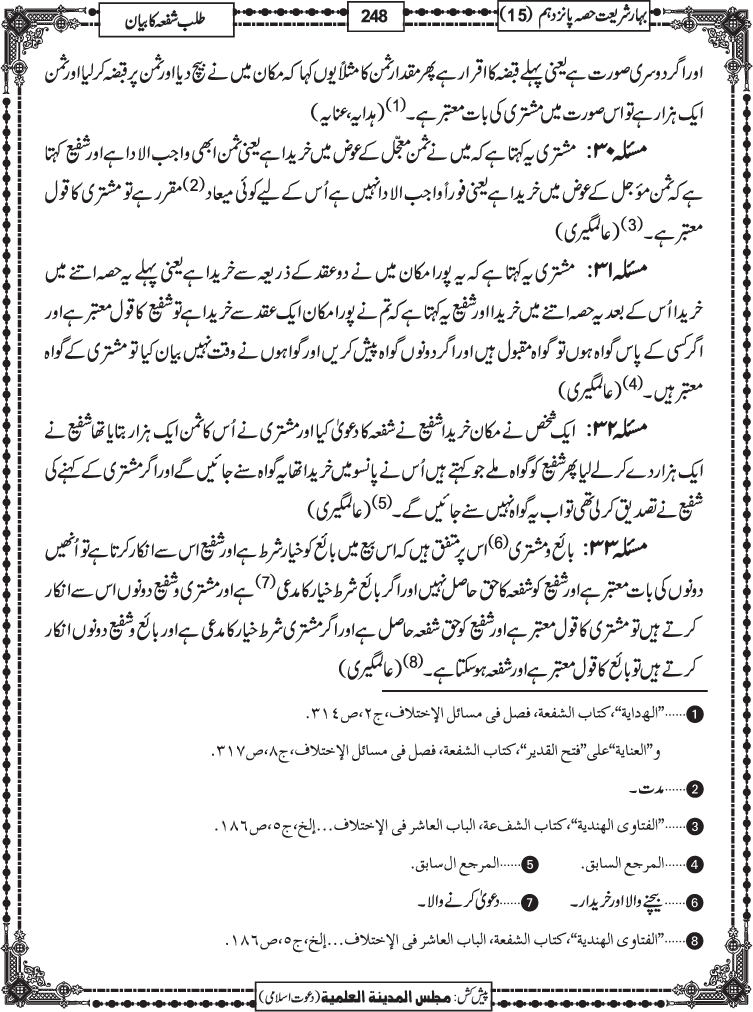 بہار شریعت حصہ پانزدہم (15)
248
طلب شفعہ کا بیان
اور اگر دوسری صورت ہے یعنی پہلے قبضہ کا اقرار ہے پھر مقدار ثمن کا مثلاً یوں کہا کہ مکان میں نے بیچ دیا اور ثمن پر قبضہ کر لیا اور ثمن
ایک ہزار ہے تو اس صورت میں مشتری کی بات معتبر ہے۔(1) (ہدایہ، عنایہ)
مسئلہ ۳۰: مشتری یہ کہتا ہے کہ میں نے ثمن معجّل کے عوض میں خریدا ہے یعنی ثمن ابھی واجب الادا ہے اور شفیع کہتا
ہے کہ ثمن مؤجل کے عوض میں خریدا ہے یعنی فوراً واجب الادا نہیں ہے اُس کے لیے کوئی میعاد(2) مقرر ہے تو مشتری کا قول
معتبر ہے۔(3) (عالمگیری)
مسئلہ ۳۱: مشتری یہ کہتا ہے کہ یہ پورا مکان میں نے دو عقد کے ذریعہ سے خریدا ہے یعنی پہلے یہ حصہ اتنے میں
خریدا اُس کے بعد یہ حصہ اتنے میں خریدا اور شفیع یہ کہتا ہے کہ تم نے پورا مکان ایک عقد سے خریدا ہے تو شفیع کا قول معتبر ہے اور
اگر کسی کے پاس گواہ ہوں تو گواہ مقبول ہیں اور اگر دونوں گواہ پیش کریں اور گواہوں نے وقت نہیں بیان کیا تو مشتری کے گواہ
معتبر ہیں۔(4) (عالمگیری)
مسئلہ ۳۲: ایک شخص نے مکان خریدا شفیع نے شفعہ کا دعویٰ کیا اور مشتری نے اُس کا ثمن ایک ہزار بتایا تھا شفیع نے
ایک ہزار دے کر لے لیا پھر شفیع کو گواہ ملے جو کہتے ہیں اُس نے پانسو میں خریدا تھا یہ گواہ سنے جائیں گے اور اگر مشتری کے کہنے کی
شفیع نے تصدیق کر لی تھی تو اب یہ گواہ نہیں سنے جائیں گے۔(5) (عالمگیری)
مسئلہ ۳۳: بائع و مشتری(6) اس پر متفق ہیں کہ اس بیع میں بائع کو خیار شرط ہے اور شفیع اس سے انکار کرتا ہے تو اُنھیں
دونوں کی بات معتبر ہے اور شفیع کو شفعہ کا حق حاصل نہیں اور اگر بائع شرط خیار کا مدعی(7) ہے اور مشتری و شفیع دونوں اس سے انکار
کرتے ہیں تو مشتری کا قول معتبر ہے اور شفیع کو حق شفعہ حاصل ہے اور اگر مشتری شرط خیار کا مدعی ہے اور بائع و شفیع دونوں انکار
کرتے ہیں تو بائع کا قول معتبر ہے اور شفعہ ہو سکتا ہے۔(8) (عالمگیری)
1......"الهداية"، كتاب الشفعة، فصل فى مسائل الإختلاف، ج٢، ص٣١٤.
و"العناية"على"فتح القدير"، كتاب الشفعة، فصل فى مسائل الإختلاف، ج٨، ص٣١٧.
2......مدت۔
3......"الفتاوى الهندية"، كتاب الشفعة، الباب العاشر فى الإختلاف...إلخ، ج٥، ص١٨٦.
4......المرجع السابق. 5......المرجع ال سابق.
6......بیچنے والا اور خریدار۔ 7......دعویٰ کرنے والا۔
8......"الفتاوى الهندية"، كتاب الشفعة، الباب العاشر فى الإختلاف...إلخ، ج٥، ص١٨٦.
پیش کش: مجلس المدینة العلمیة (دعوت اسلامی)